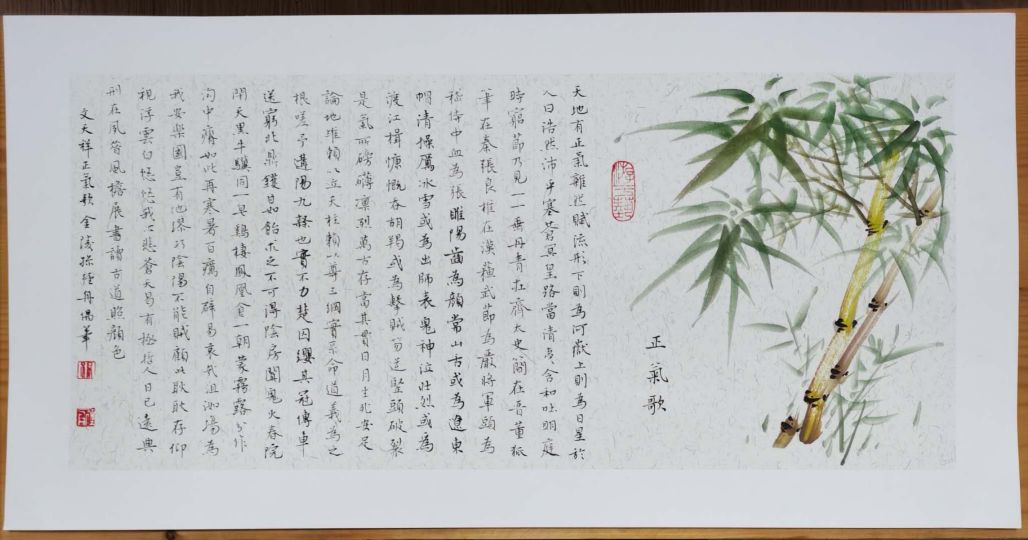 正氣歌
天地有正氣雜然賦流形下則為河嶽上則為日星於
人曰浩然沛乎塞蒼冥皇路當清夷含和吐明庭
時窮節乃見一一垂丹青在齊太史簡在晉董狐
筆在秦張良椎在漢蘇武節為嚴將軍頭為
嵇侍中血為張睢陽齒為顏常山舌或為遼東
帽清操厲冰雪或為出師表鬼神泣壯烈或為
渡江楫慷慨吞胡羯或為擊賊笏逆豎頭破裂
是氣所磅礴凜烈萬古存當其貫日月生死安足
論地維賴以立天柱賴以尊三綱實系命道義為之
根嗟予遘陽九隸也實不力楚囚纓其冠傳車
送窮北鼎鑊甘如飴求之不可得陰房闃鬼火春院
閉天黑牛驥同一皂鷄棲鳳凰食一朝蒙霧露分作
溝中瘠如此再寒暑百癘自辟易哀哉沮洳場為
我安樂國豈有他繆巧陰陽不能賊顧此耿耿存仰
視浮雲白悠悠我心悲蒼天曷有極哲人日已遠典
刑在夙昔風檐展書讀古道照顏色
文天祥正氣歌 金陵